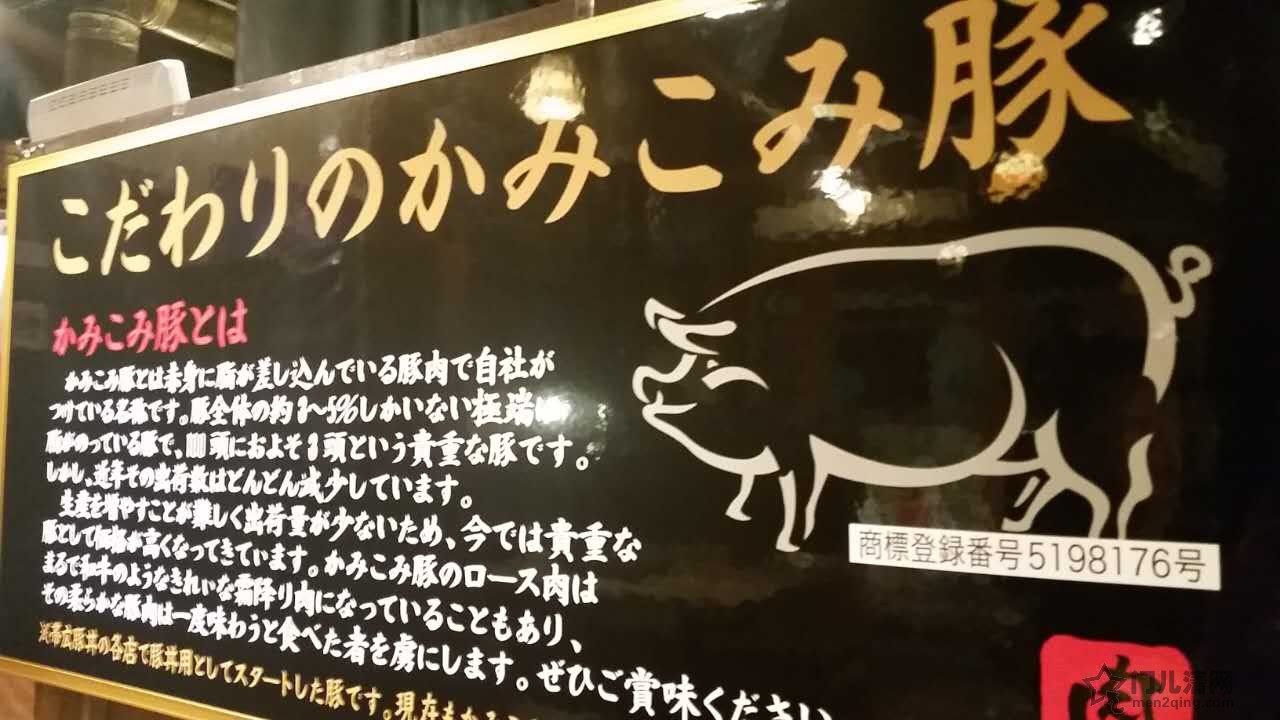 こだわりのかみこみ豚
かみこみ豚とは
かみこみ豚とは赤身に脂が差し込んでいる豚肉で自社が
つけている名称です。豚全体の約3〜5%しかいない極端に
脂がのっている豚で、100頭におよそ3頭という貴重な豚です。
しかし、近年その出荷数はどんどん減少しています。
生産を増やすことが難しく出荷量が少ないため、今では貴重な
豚として価格が高くなってきています。かみこみ豚のロース肉は
まるで和牛のようなきれいな霜降り肉になっていることもあり、
その柔らかな豚肉は一度味わうと食べた者を虜にします。ぜひご賞味ください
※帯広豚丼の各店で豚丼用としてスタートした豚です。現在もかみこ
商標登録番号5198176号
men2qing.com